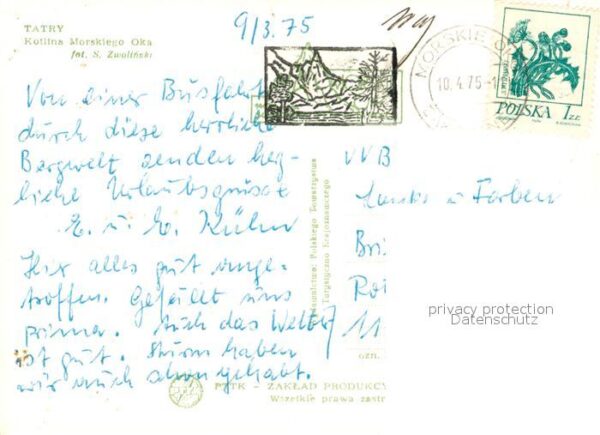 TATRY
Kotlina Morskiego Oka
fot. S. Zwoliński
9/3.75
MORSKIE O
10.4.75-1
POLSKA 1 ZŁ
Von einer Busfahrt
durch diese herrliche
Bergwelt senden herz-
liche Urlaubsgrüsse
E. u. E. Kühn
Hier alles gut ange-
troffen. Gefällt uns
prima. Auch das Wetter
ist gut. Sturm haben
wir auch schon gehabt.
VVB
u Farben
Bri
Roi
11
privacy protection
Datenschutz
Wydawnictwo: Polskiego Towarzystwa
Turystyczno Krajoznawczego
PTTK - ZAKŁAD PRODUKC
Wszelkie prawa zastr